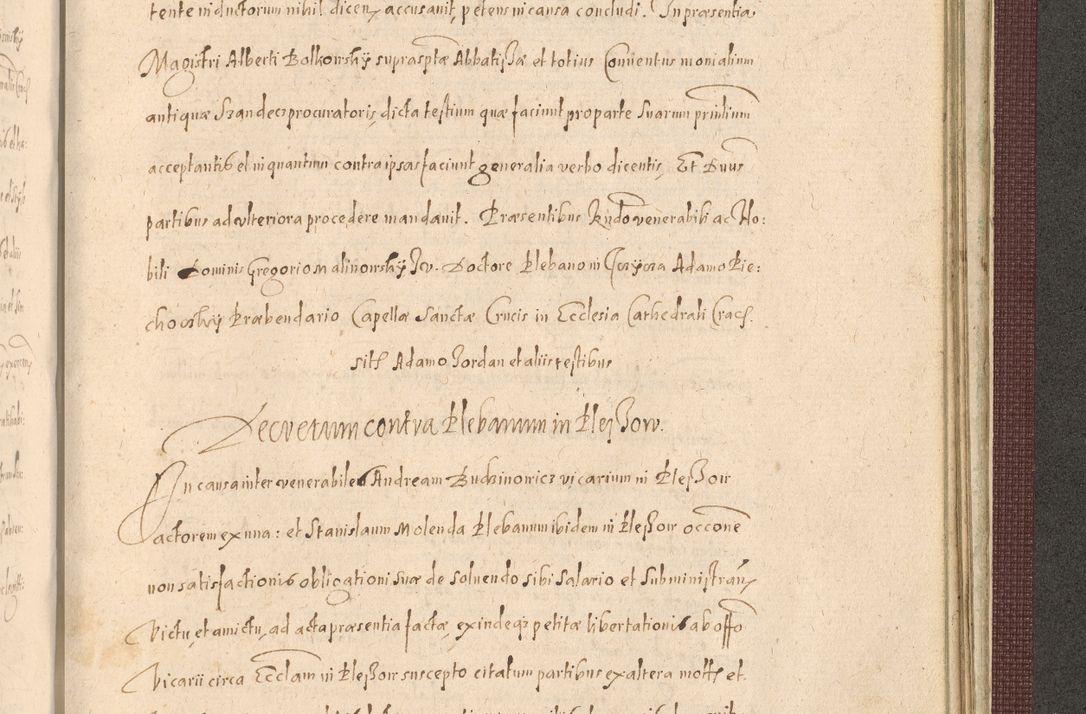 tente inductorum nihil dicen, accusavit, petens in causa concludi. In præsentia
Magistri Alberti Bolkowsky supraspta Abbatissæ et totius Conventus monialium
antiquæ Szandecz procuratoris, dicta testium quæ faciunt pro parte suarum prin͠lium
acceptantis et in quantum contra ipsas faciunt generalia verbo dicentis, Et D
partibus ad ulteriora procedere mandavit. Præsentibus Rndo venerabili ac No:
bili Dominis Gregorio Malinowsky Jv. Doctore Plebano in Adamo Pie:
chowsky Præbendario Capellæ Sanctæ Crucis in Ecclesia Cathedrali Crac.
sitt Adamo Jordan et aliis testibus
Decretum contra Plebanum in Plessow.
In causa inter venerabiles Andream Budzinowicz vicarium in Plessow
actorem ex una: et Stanislaum Molenda Plebanum ibidem in Plessow occone
non satisfactionis obligationi suæ de solvendo sibi salario et subministran
victu, et amictu, ad acta præsentia factæ, exindeq petitæ libertationis ab offo
Vicarii circa Ecclam in Plessow suscepto citatum partibus ex altera mott et